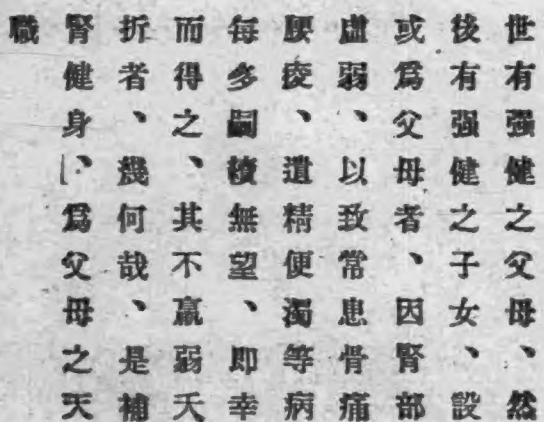 世有强健之父母、然
後有强健之子女、設
或爲父母者、因腎部
虛弱、以致常患骨痛
腰痠、遺精便濁等病
每多嗣續無望、即幸
而得之、其不羸弱夭
折者、幾何哉、是補
腎健身、爲父母之天
職